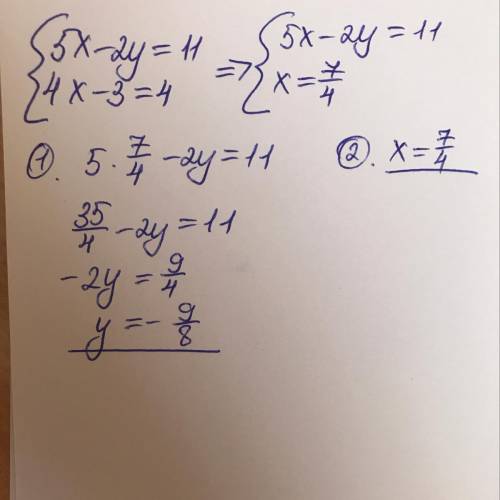 { 5x-2y=11 => { 5x-2y=11
4x-3=4 x=7/4
① . 5·7/4-2y=11 ② . x=7/4
35/4-2y=11
-2y=9/4
y=-9/8